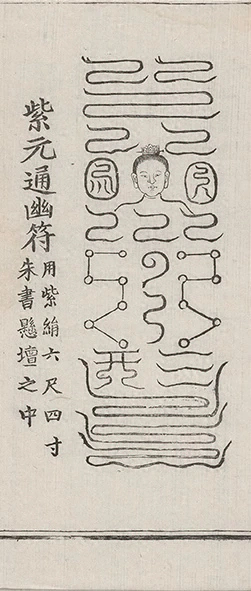 紫元通幽符
用紫絹六尺四寸
朱書懸壇之中